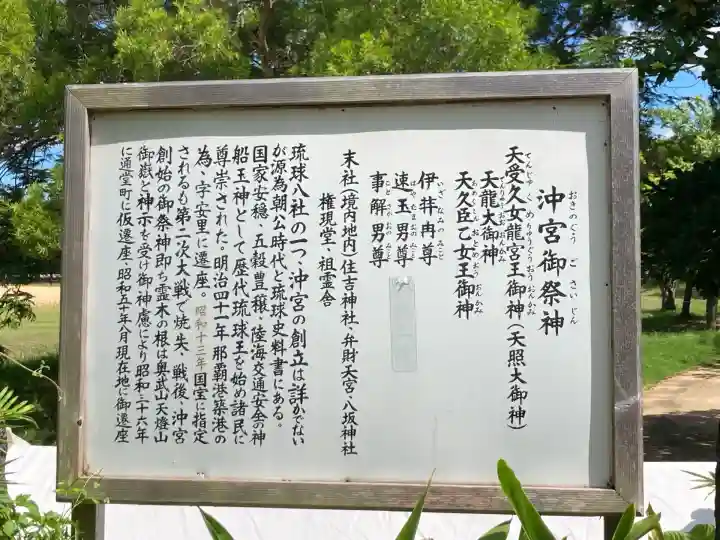 沖宮御祭神
おきのぐう ごさいじん
天受久女龍宮王御神(天照大御神)
天龍大御神
天久臣乙女王御神
伊弉冉尊
いざなみのみこと
速玉男尊
事解男尊
末社(境内地内)住吉神社・弁財天宮・八坂神社
権現堂、祖霊舎
琉球八社の一つ、沖宮の創立は詳かでない
が源為朝公時代と琉球史料書にある。
国家安穏、五穀豊穣、陸海交通安全の神
船玉神として歴代琉球王を始め諸民に
尊崇された。明治四十一年那覇港築港の
為、字安里に遷座。昭和十三年国宝に指定
されるも第二次大戦で焼失、戦後、沖宮
創始の御祭神即ち霊木の根は奥武山天燈山
御嶽と神示を受け御神慮により昭和三十六年
に通堂町に仮遷座、昭和五十年八月現在地に御遷座